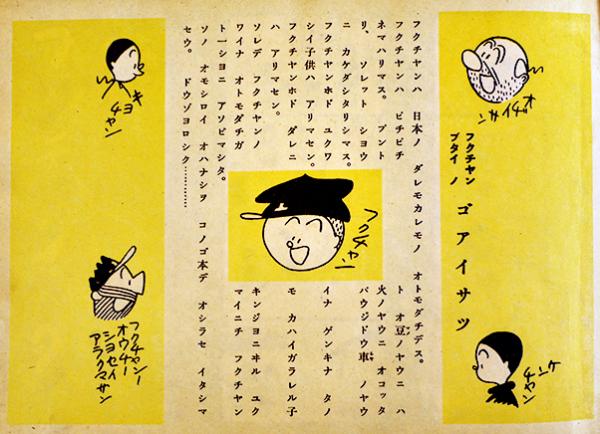 オヂイサン
フクチヤン
ブタイ ノ
ゴアイサツ
ケンチヤン
フクチヤンハ 日本ノ ダレモカレモノ オトモダチデス。
フクチヤンハ ピチピチト オ豆ノヤウニ ハ
ネマハリマス。 プント 火ノヤウニ オコッタ
リ、ソレット ショウバウジドウ車ノ ヤウ
ニ カケダシタリシマス。
フクチヤンホド ユクワイナ ゲンキナ タノ
シイ子供ハ アリマセン。
フクチヤンホド ダレニモ カハイガラレル子
ハ アリマセン。
ソレデ フクチヤンノ キンジヨニヰル ユク
ワイナ オトモダチガ マイニチ フクチヤン
ト一シヨニ アソビマシタ。
ソノ オモシロイ オハナシヲ コノゴ本デ オシラセ イタシマ
セウ。 ドウゾヨロシク…………
フクチャン
キヨチャン
フクチャンノ
オウチノ
シヨセイ
アラクマサン